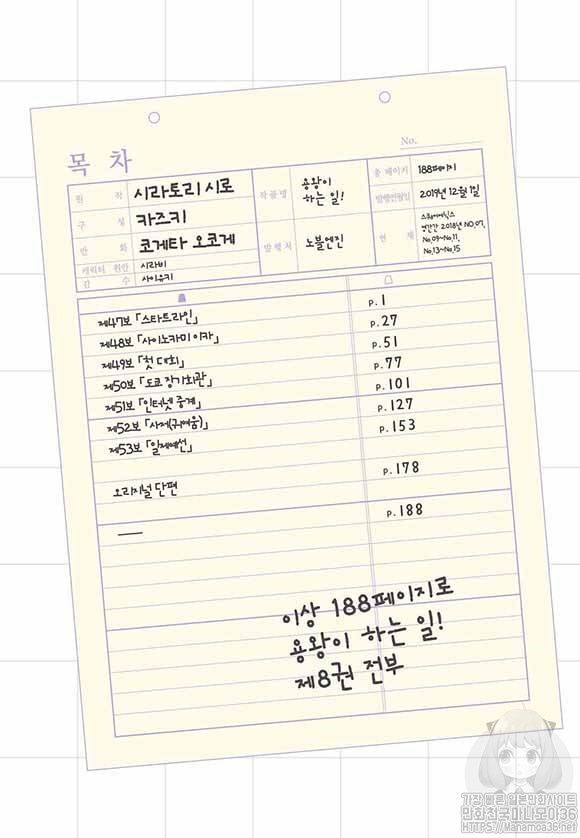 목 차
No.
원 작 시라토리 시로
구 성 카즈키
만 화 코게타 오코게
캐릭터 원안 시라비
감 수 사이유키
작품명 용왕이
하는 일!
발행처 노블엔진
총 페이지 188페이지
발행연월일 2019년 12월 1일
연 재 스퀘어에닉스
영간간 2018년 NO.07,
No.09~No.11,
No.13~No.15
제47보 「스타트라인」 p. 1
제48보 「사이노카미 이카」 p. 27
제49보 「첫 대회」 p. 51
제50보 「도쿄 장기회관」 p. 77
제51보 「인터넷 중계」 p. 101
제52보 「사저(귀여움)」 p. 127
제53보 「일제예선」 p. 153
오리지널 단편 p. 178
── p. 188
이상 188페이지로
용왕이 하는 일!
제8권 전부
가장 빠른 일본만화사이트
만화천국마나모아36
HTTPS://Manamoa36.net